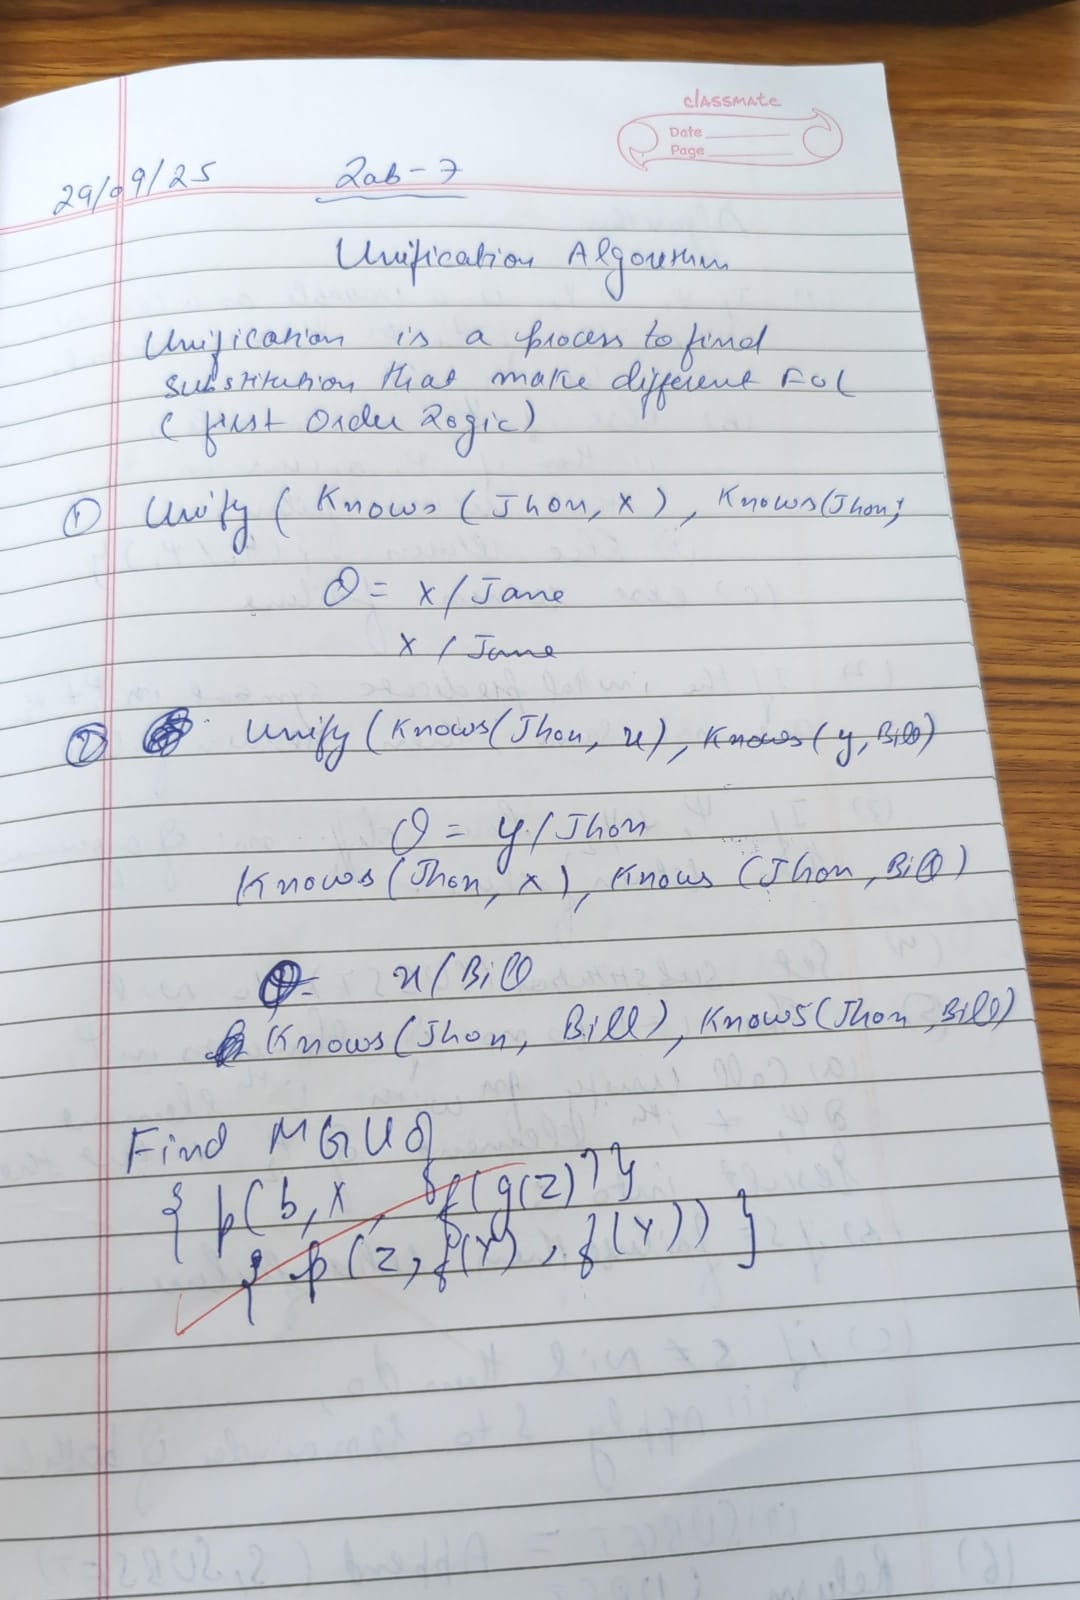 classmate
Date
Page
29/09/25
Lab-7
Unification Algorithm
Unification is a process to find
substitution that make different FOL
( first Order Logic)
① Unify ( Knows ( Jhon, x ), Knows(Jhon,
θ = x / Jane
x / Jane
② Unify (Knows(Jhon, x), Knows( y, Bill)
θ = y / Jhon
Knows (Jhon, x), Knows (Jhon, Bill)
x / Bill
Knows (Jhon, Bill), Knows (Jhon, Bill)
Find MGU of
{ p(b, x, f(g(z)) }
p (z, f(Y), f(Y)) }